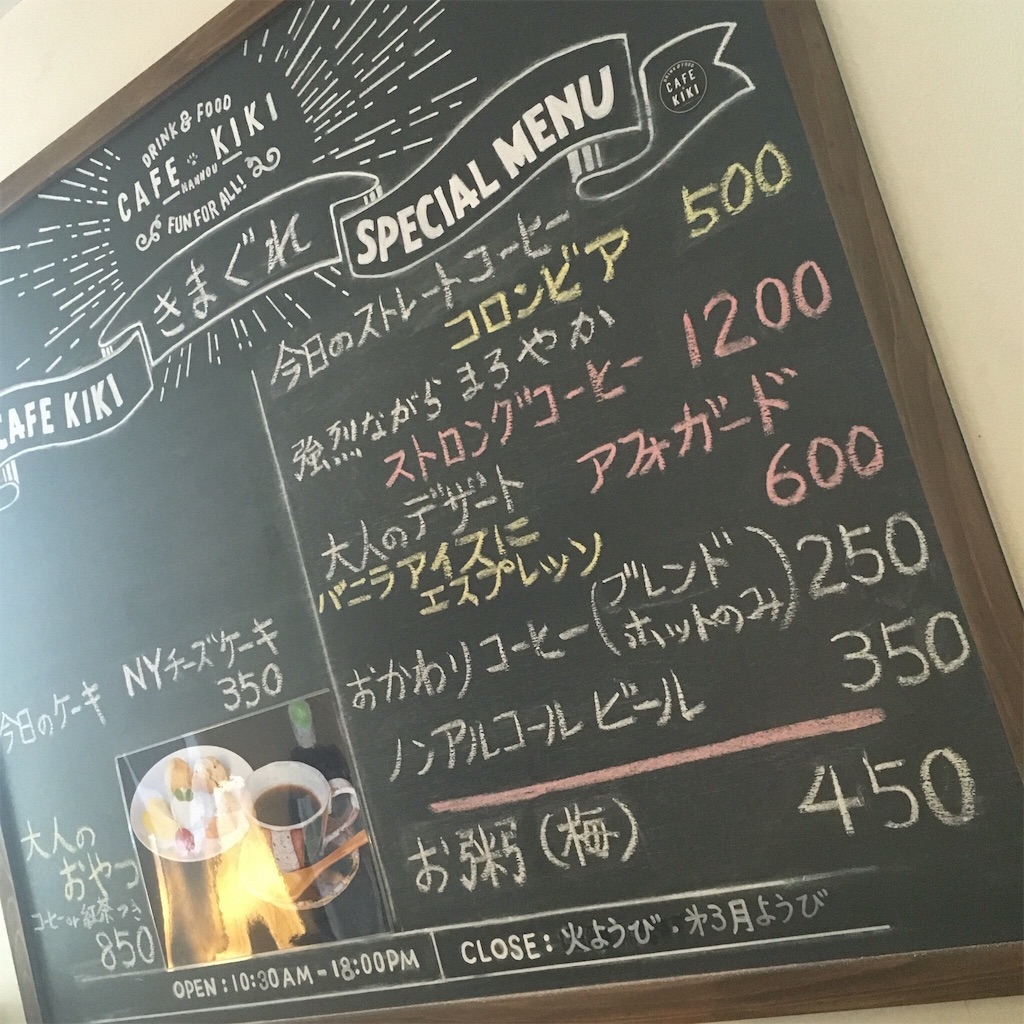 DRINK & FOOD
CAFE KIKI
HANNOU
FUN FOR ALL!
CAFE KIKI
きまぐれ
SPECIAL MENU
CAFE
KIKI
今日のストレートコーヒー
コロンビア 500
強烈ながら まろやか
ストロングコーヒー 1200
大人のデザート アフォガード
バニラアイスに
エスプレッソ 600
おかわりコーヒー(ブレンド
ホットのみ) 250
ノンアルコールビール 350
お粥(梅) 450
今日のケーキ NYチーズケーキ
350
大人の
おやつ
コーヒーor紅茶つき
850
OPEN : 10:30AM - 18:00PM
CLOSE : 火ようび・第3月ようび